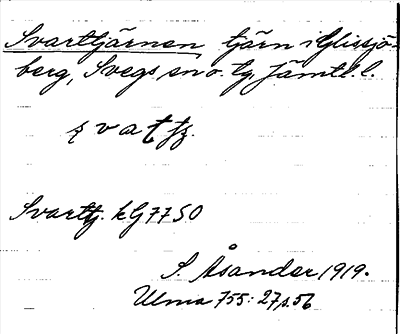 Svarttjärnen, tjärn i Glissjö-
berg, Svegs sn o. tg, Jämtl. l.
svattj.
Svarttj. kG 7750
S. Åsander 1919.
Ulma 755: 27 s. 56